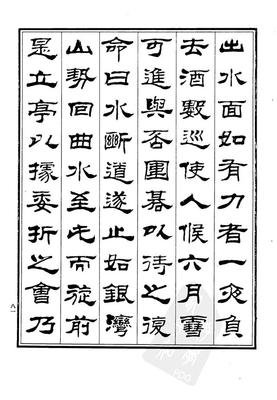 出水面如有力者一夜負
去酒數巡使人候六月雪
可進與否圍碁以待之復
命曰水斷道遂止如銀灣
山勢回曲水至此而旋前
是立亭以據委折之會乃
PDG